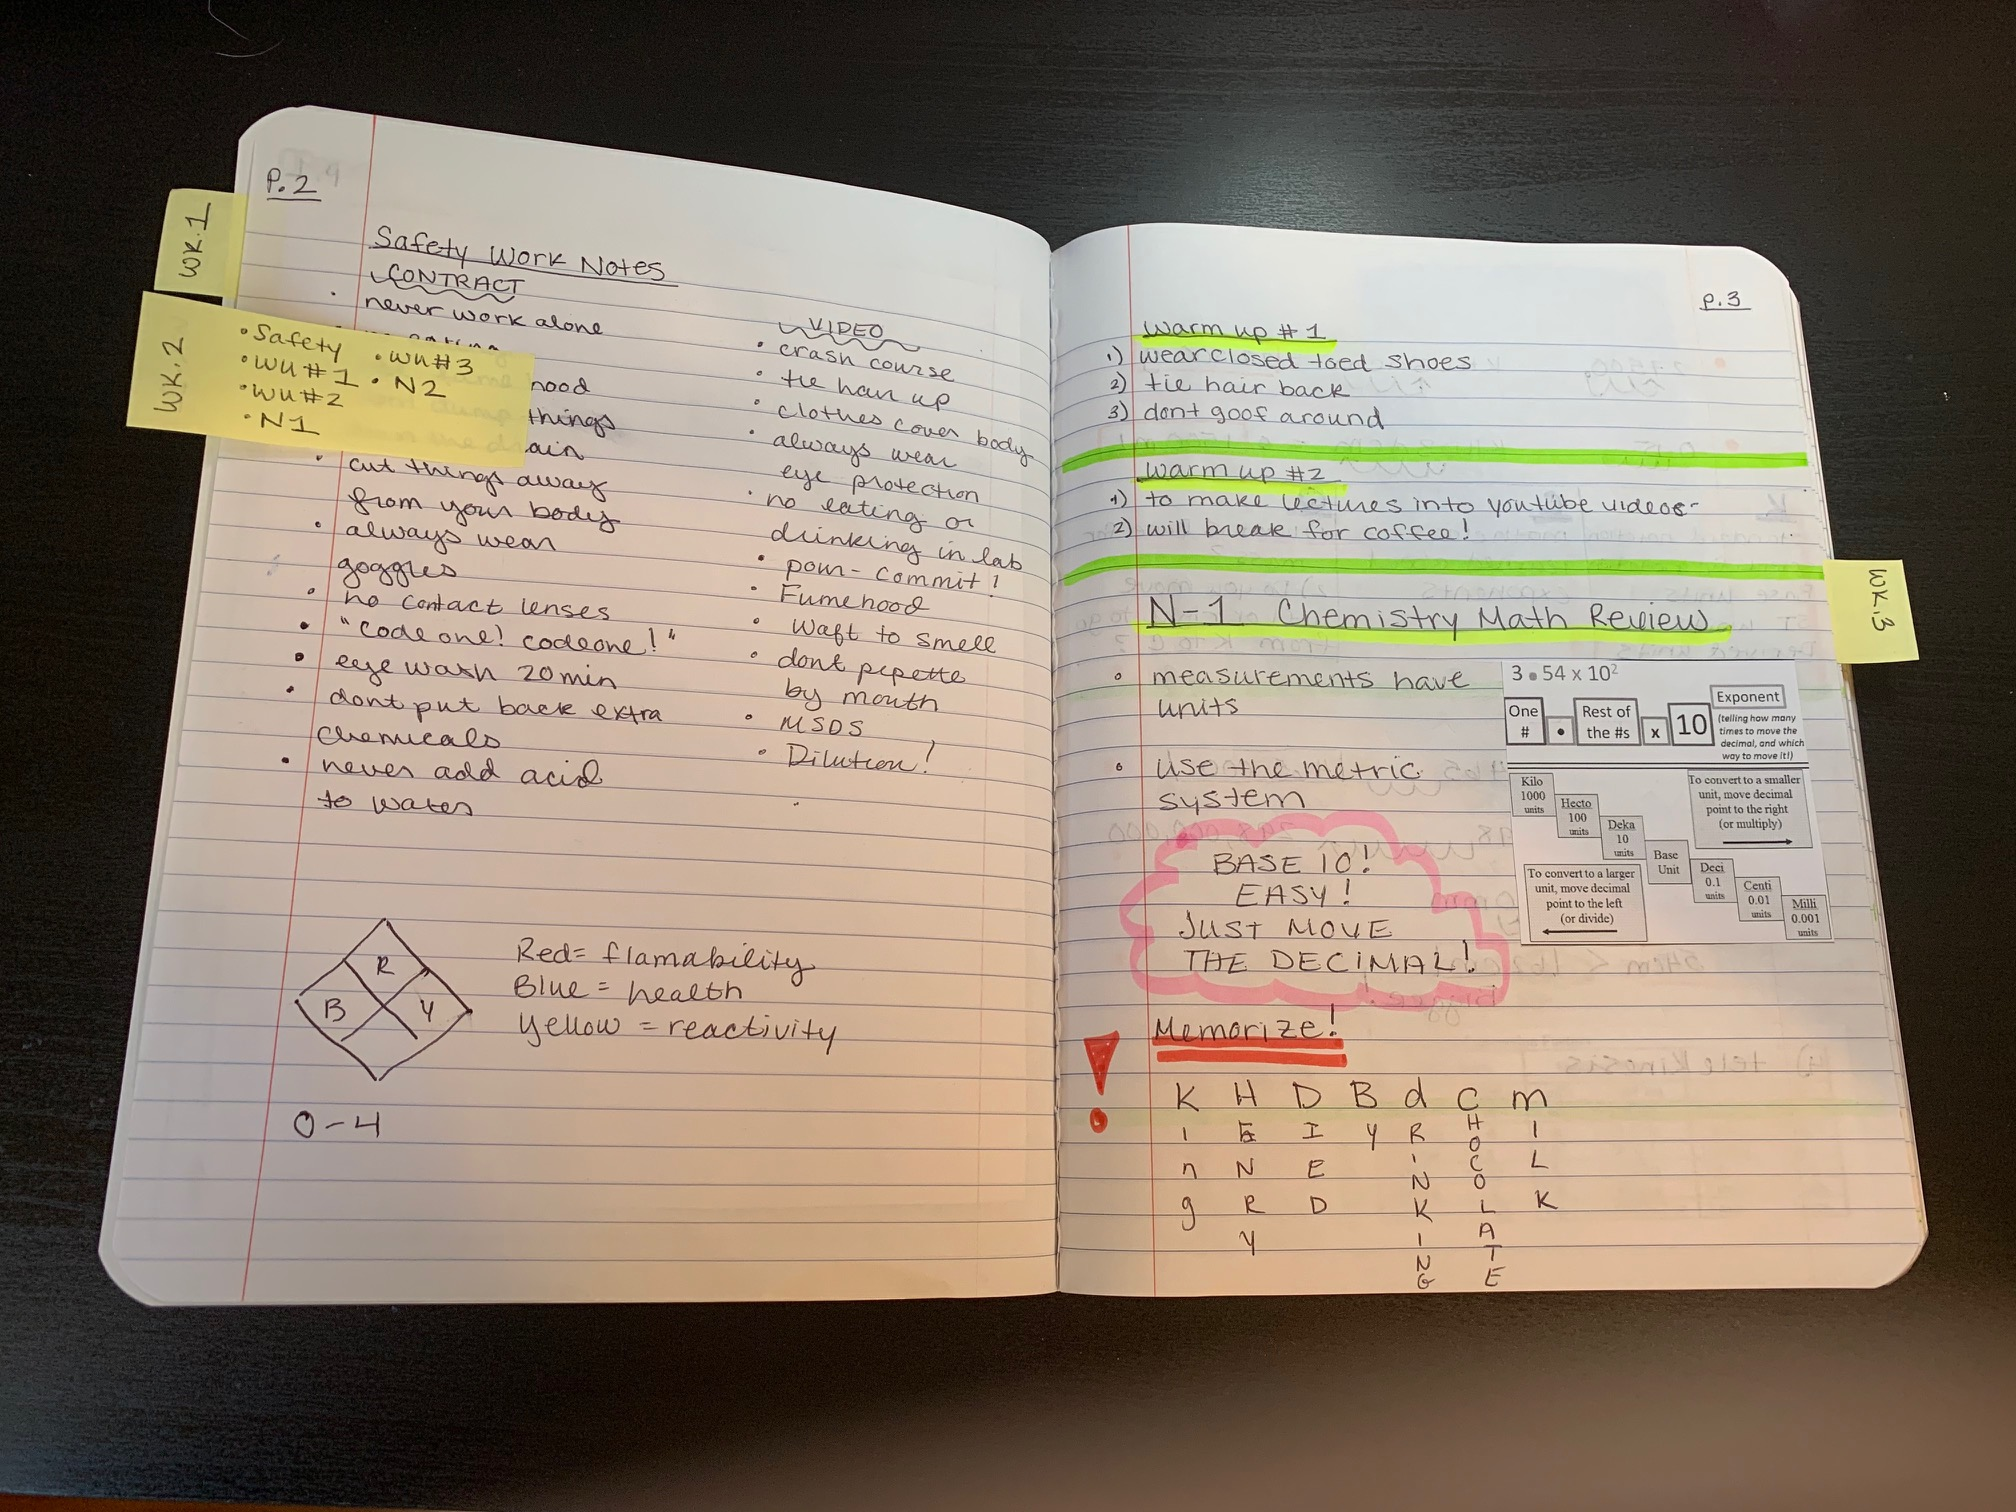 P.2
WK.1
Safety Work Notes
CONTRACT
• never work alone
WK.2
• Safety
• WU#1
• WU#2
• N1
• WU#3
• N2
hood
things
ain
• cut things away
from your body
• always wear
goggles
• no contact lenses
• "code one! code one!"
• eye wash 20min
• dont put back extra
chemicals
• never add acid
to water
VIDEO
• crash course
• tie hair up
• clothes cover body
• always wear
eye protection
• no eating or
drinking in lab
• pour - commit!
• Fumehood
• Waft to smell
• dont pepette
by mouth
• MSDS
• Dilution!
R
B
Y
Red = flamability
Blue = health
Yellow = reactivity
0-4
p.3
Warm up #1
1) wear closed toed shoes
2) tie hair back
3) dont goof around
Warm up #2
1) to make lectures into youtube videos
2) will break for coffee!
WK.3
N-1 Chemistry Math Review
• measurements have
units
• use the metric
system
3•54 x 10²
One
#
•
Rest of
the #s
x
10
Exponent
(telling how many
times to move the
decimal, and which
way to move it!)
Kilo
1000
units
Hecto
100
units
Deka
10
units
Base
Unit
Deci
0.1
units
Centi
0.01
units
Milli
0.001
units
To convert to a smaller
unit, move decimal
point to the right
(or multiply)
To convert to a larger
unit, move decimal
point to the left
(or divide)
BASE 10!
EASY!
JUST MOVE
THE DECIMAL!
!
Memorize!
King
HENRY
DIED
BY
dRINKING
CHOCOLATE
mILK